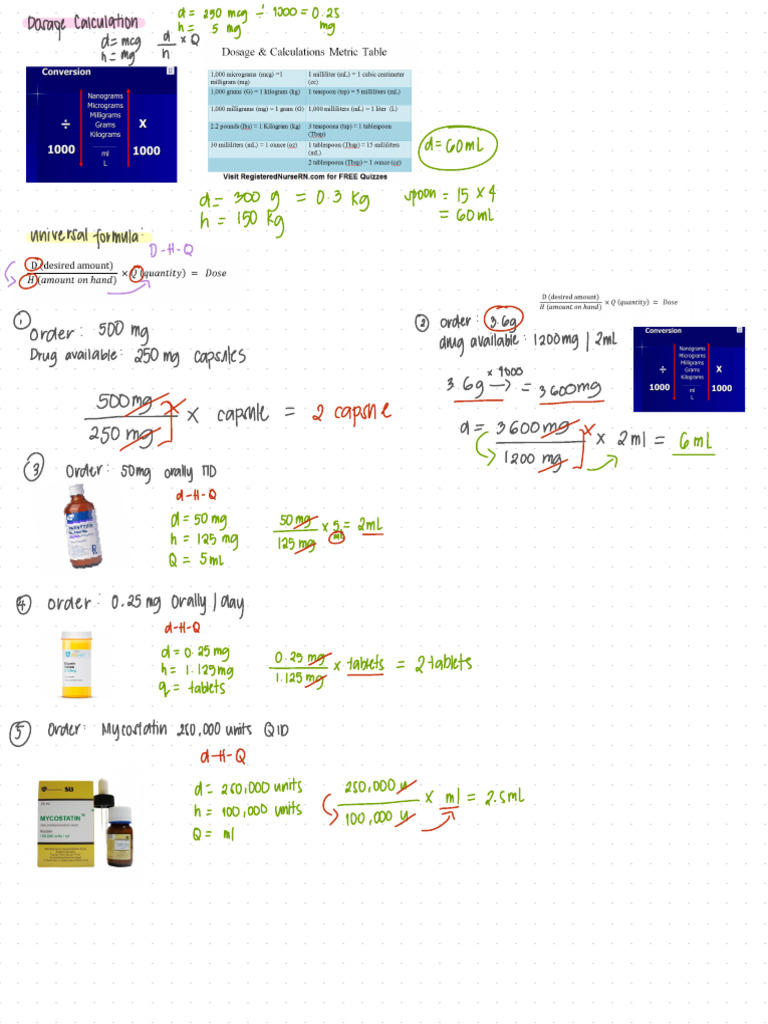 Dosage Calculation
d = mcg
h = mg
d/h × Q
d = 250 mcg ÷ 1000 = 0.25 mg
h = 5 mg
Conversion
Nanograms
Micrograms
Milligrams
Grams
Kilograms
ml
L
÷ 1000
X 1000
Dosage & Calculations Metric Table
1,000 micrograms (mcg) =1 milligram (mg)
1 milliliter (mL) = 1 cubic centimeter (cc)
1,000 grams (G) = 1 kilogram (kg)
1 teaspoon (tsp) = 5 milliliters (mL)
1,000 milligrams (mg) = 1 gram (G)
1,000 milliliters (mL) = 1 liter (L)
2.2 pounds (lbs) = 1 Kilogram (kg)
3 teaspoons (tsp) = 1 tablespoon (Tbsp)
30 milliliters (mL) = 1 ounce (oz)
1 tablespoon (Tbsp) = 15 milliliters (mL)
2 tablespoons (Tbsp) = 1 ounce (oz)
Visit RegisteredNurseRN.com for FREE Quizzes
d = 60mL
d = 300 g = 0.3 kg
h = 150 kg
spoon = 15 x 4
= 60mL
universal formula:
D-H-Q
D (desired amount) / H (amount on hand) × Q (quantity) = Dose
D (desired amount) / H (amount on hand) × Q (quantity) = Dose
① Order: 500 mg
Drug available: 250 mg capsules
500mg / 250 mg x capsule = 2 capsule
② order: 3.6g
drug available: 1200mg | 2mL
3.6g → x 1000 = 3600mg
Conversion
Nanograms
Micrograms
Milligrams
Grams
Kilograms
ml
L
÷ 1000
X 1000
d = 3600mg / 1200 mg x 2ml = 6mL
③ Order: 50mg orally TID
d-H-Q
d = 50mg
h = 125 mg
Q = 5mL
50mg / 125mg x 5 mL = 2mL
④ order: 0.25mg Orally/day
d-H-Q
d = 0.25mg
h = 1.125mg
q = tablets
0.25mg / 1.125mg x tablets = 2 tablets
⑤ Order: Mycostatin 250,000 units QID
d-H-Q
d = 250,000 units
h = 100,000 units
Q = ml
250,000 u / 100,000 u x ml = 2.5mL
MYCOSTATIN